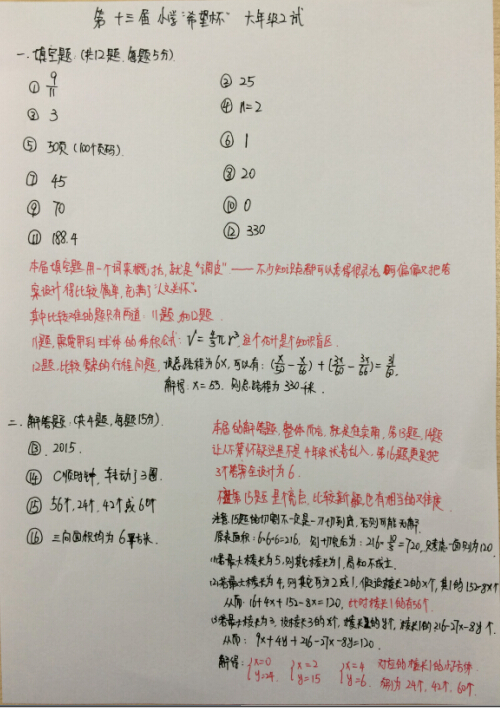 第十三届小学"希望杯" 六年级2试
一、填空题:(共12题,每题5分)
① 9/11
② 25
③ 3
④ n=2
⑤ 50页(100个页码)
⑥ 1
⑦ 45
⑧ 20
⑨ 70
⑩ 0
⑪ 188.4
⑫ 330
本届填空题用一个词来概括,就是"调皮"——不少知识点都可以考得很灵活,可偏偏又把答
案设计得比较简单,充满了"人文关怀"。
其中比较难的题只有两道:11题和12题.
11题,需要用到球体的体积公式:V=4/3πr³,这个估计是个知识盲区.
12题,比较繁的行程问题,设总路程为6x,可以有:(x/50-x/66)+(3x/60-3x/66)=31/60.
解得:x=55.则总路程为330千米.
二、解答题:(共4题,每题15分).
⑬ 2015.
⑭ C顺时针,转动了3圈.
⑮ 56个,24个,42个或60个
⑯ 三面面积均为6平方米.
本届的解答题,整体而言,就是在卖萌,第13题,14题
让人不禁怀疑这是不是4年级试卷乱入.第16题更是把
3个答案在设计为6.
15题是个亮点,比较新颖,也有相当的难度.
注意15题的切割不一定是一刀切到底,否则可能无解.
原表面积:6×6×6=216.则切后为:216×10/3=720,只考虑一面则为120
(1)若最大棱长为5,则其它棱长为1,易知不成立.
(2)若最大棱长为4,则其它可为2或1,假设棱长2的x个,其1的152-8x个
从而:16+4x+152-8x=120,此时棱长1的有56个.
(3)若最大棱长为3,设棱长3的x个,棱长2的y个,棱长1的216-27x-8y个.
从而:9x+4y+216-27x-8y=120.
解得:{x=0 y=24. {x=2 y=15 {x=4 y=6. 对应的棱长1的小正方体
分别为24个,42个,60个